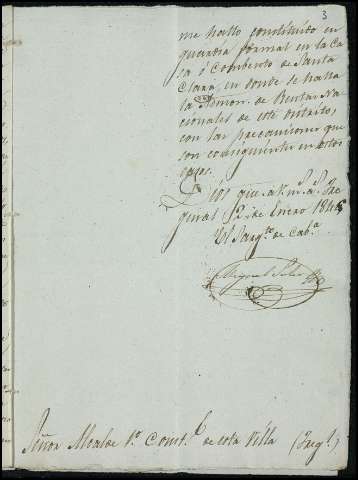 3
me hallo constituido en
guardia formal en la Ca
sa ó Combento de Santa
Clara, en donde se halla
la Admon. de Rentas Na
cionales de este distrito,
con las precauciones que
son consiguientes en estos
casos.
Dios gue. a V. m. a. Fre
genal Enero 184
El Sargto. de Caba.
Miguel
Señor Alcalde 1o. Constl. de esta Villa (Fregl.)